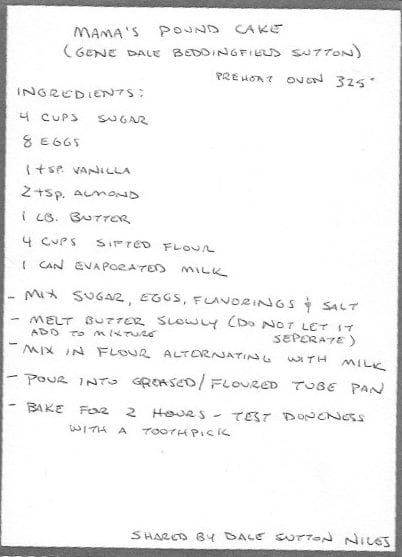 MAMA'S POUND CAKE
(GENE DALE BEDDINGFIELD SUTTON)
PREHEAT OVEN 325°
INGREDIENTS:
4 CUPS SUGAR
8 EGGS
1 tsp. VANILLA
2 tsp. ALMOND
1 LB. BUTTER
4 CUPS SIFTED FLOUR
1 CAN EVAPORATED MILK
- MIX SUGAR, EGGS, FLAVORINGS & SALT
- MELT BUTTER SLOWLY (DO NOT LET IT SEPERATE)
ADD TO MIXTURE
- MIX IN FLOUR ALTERNATING WITH MILK
- POUR INTO GREASED/FLOURED TUBE PAN
- BAKE FOR 2 HOURS - TEST DONENESS
WITH A TOOTHPICK
SHARED BY DALE SUTTON NILES